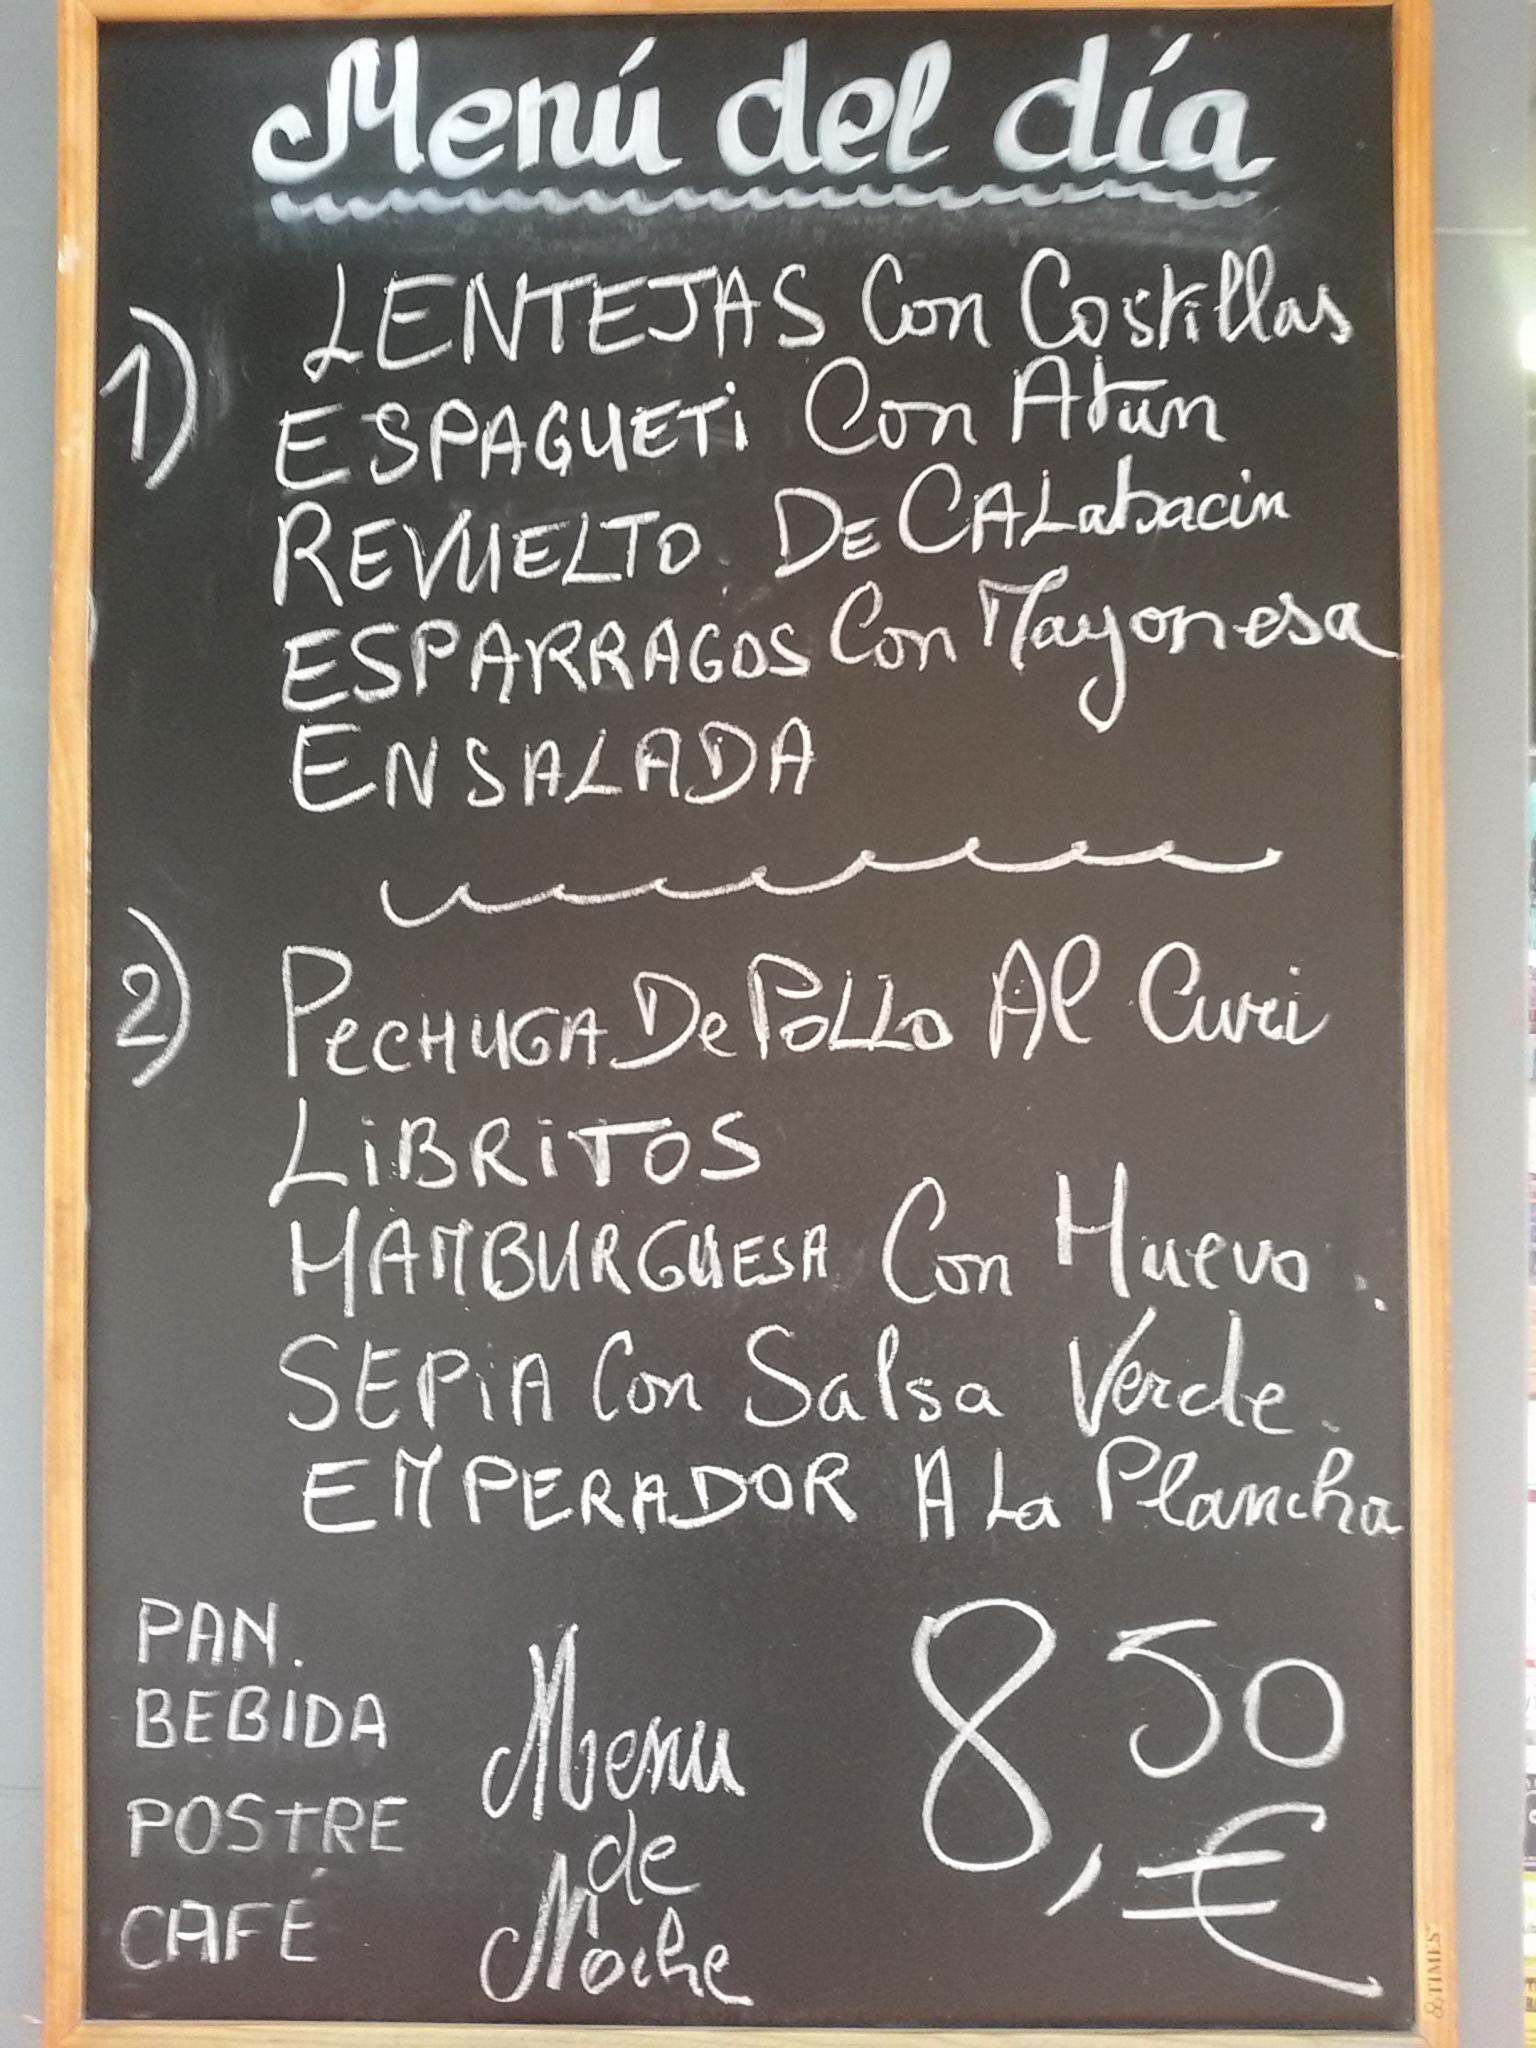 Menú del día
1)
LENTEJAS Con Costillas
ESPAGUETi Con Atún
REVUELTO DE CALabacin
ESPARRAGOS Con Mayonesa
ENSALADA
2)
PeCHUGA De POLLO Al Curi
LiBRiTOS
HAMBURGUESA Con Huevo.
SEPiA Con Salsa Verde.
EMPERADOR A La Plancha
PAN.
BEBIDA
POSTRE
CAFÉ
Menu
de
Noche
8,50
€
TIMES